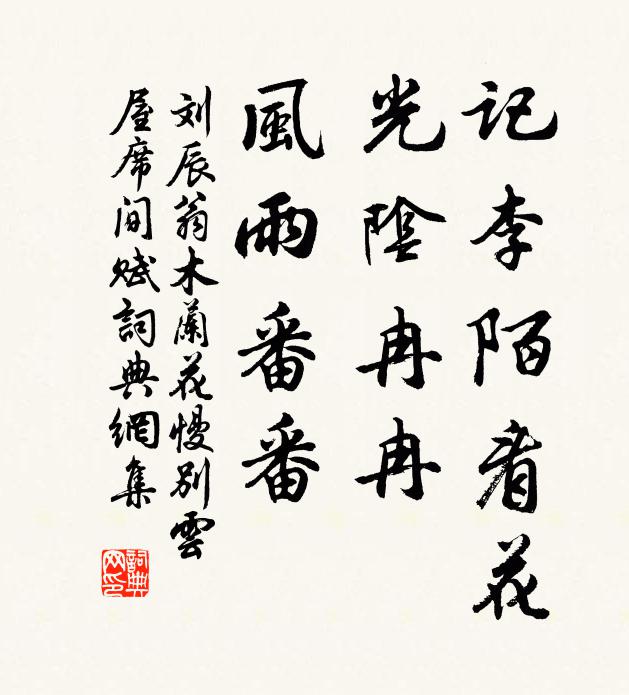 記李陌看花
光陰冉冉
風雨番番
刘辰翁木蘭花慢别雲
屋席間賦詞典網集
詞典网印